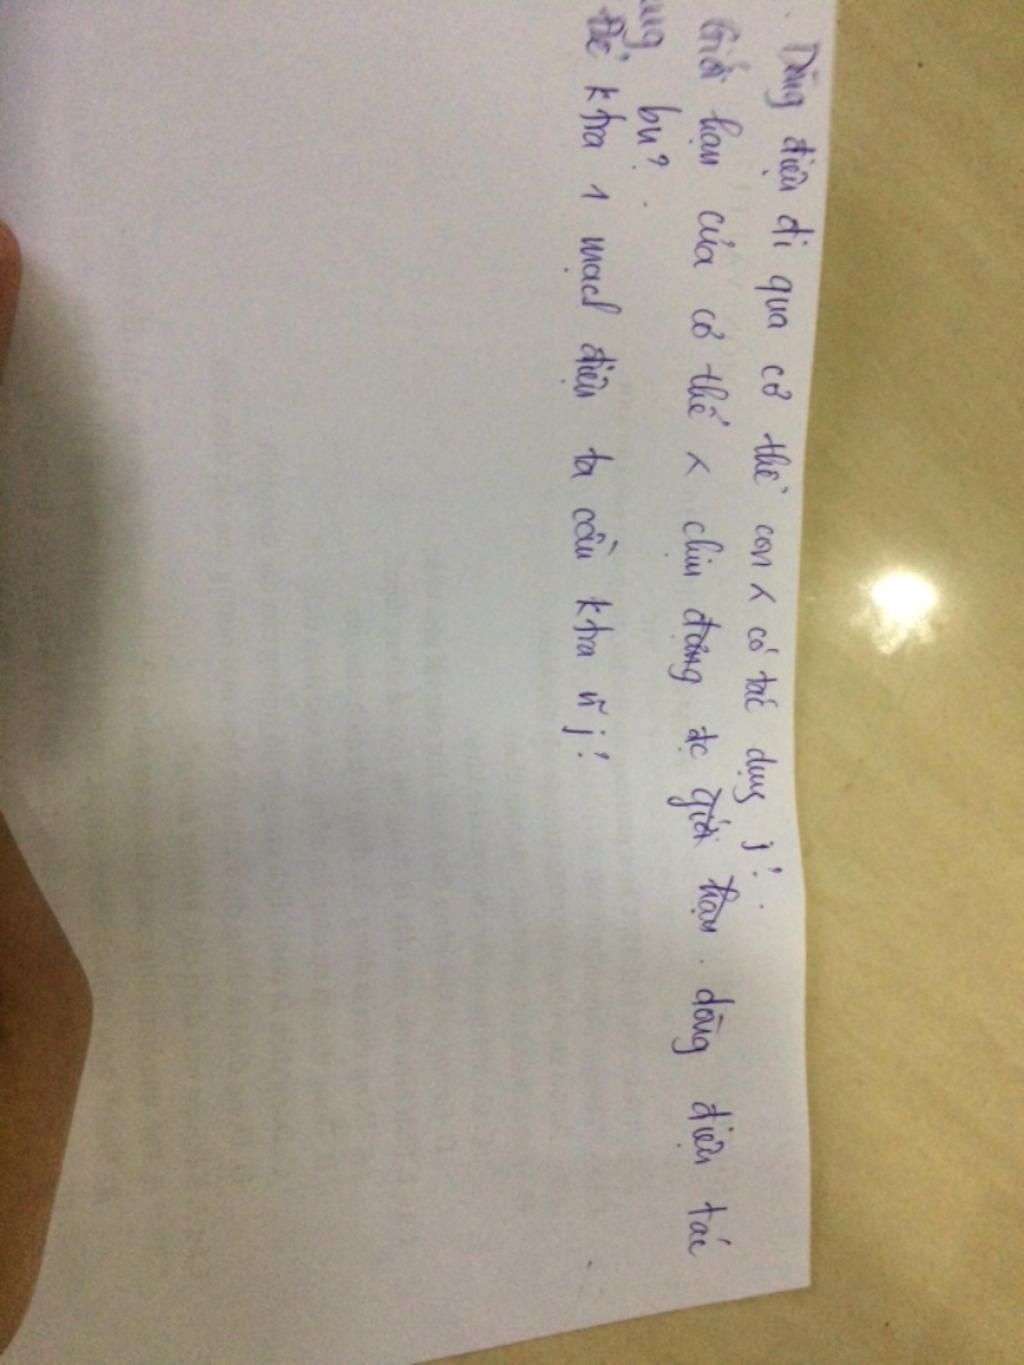 Dòng điện đi qua cơ thể con < có tác dụng j?
Giới hạn của cơ thể < chịu đựng đc giới hạn dòng điện tác
dụng bn?
Để ktra 1 mạch điện ta cần ktra ~ j?